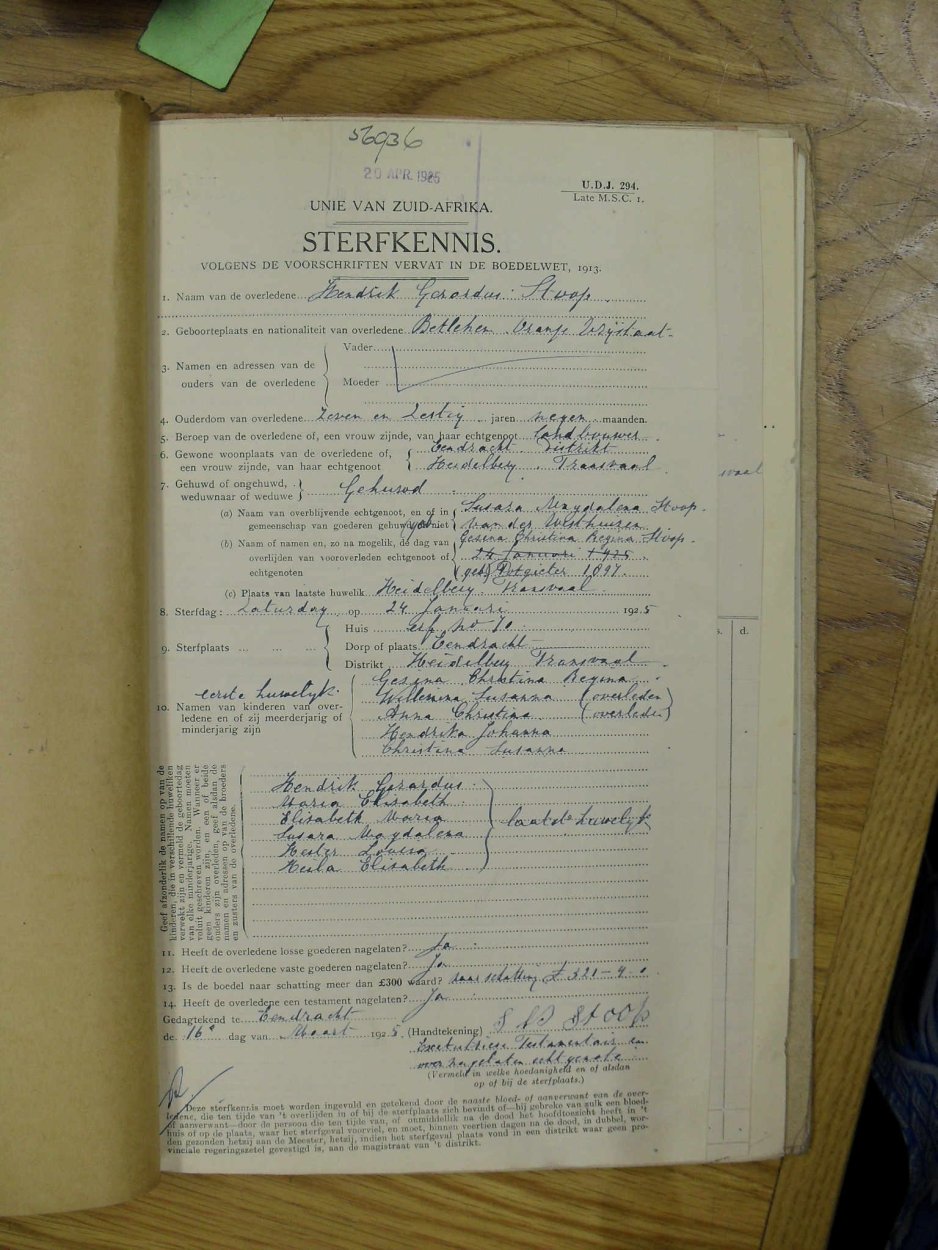 56936
20 APR. 1925
U.D.J. 294.
Late M.S.C. 1.
UNIE VAN ZUID-AFRIKA.
STERFKENNIS.
VOLGENS DE VOORSCHRIFTEN VERVAT IN DE BOEDELWET, 1913.
1. Naam van de overledene Hendrik Gerardus Stoop
2. Geboorteplaats en nationaliteit van overledene Betlehem Oranje Vrijstaat
3. Namen en adressen van de ouders van de overledene
Vader
Moeder
4. Ouderdom van overledene Zeven en Zestig jaren negen maanden.
5. Beroep van de overledene of, een vrouw zijnde, van haar echtgenoot Landbouwer
6. Gewone woonplaats van de overledene of, Eendracht Distrikt
een vrouw zijnde, van haar echtgenoot Heidelberg Transvaal
7. Gehuwd of ongehuwd, weduwnaar of weduwe Gehuwd
(a) Naam van overblijvende echtgenoot, en of in Susara Magdalena Stoop
gemeenschap van goederen gehuwd of niet van der Westhuizen
(b) Naam of namen en, zo na mogelik, de dag van Gesina Christina Regina Stoop
overlijden van vooroverleden echtgenoot of 24 Januari 1925
echtgenoten (geb) Potgieter 1897.
(c) Plaats van laatste huwelik Heidelberg Transvaal
8. Sterfdag: Zaturday op 24 Januari 1925
9. Sterfplaats
Huis erf no 70
Dorp of plaats Eendracht
Distrikt Heidelberg Transvaal
eerste huwelyk
10. Namen van kinderen van overledene en of zij meerderjarig of minderjarig zijn
Gesina Christina Regina
Willemina Susanna (overleden)
Anna Christina (overleden)
Hendrika Johanna
Christina Susanna
Geef afzonderlik de namen op van de
kinderen, die in verschillende huweliken
verwekt zijn en vermeld de geboortedag
van elke minderjarige. Namen moeten
voluit geschreven worden. Wanneer er
geen kinderen zijn, en een of beide
ouders zijn overleden, geef alsdan de
namen en adressen op van de broeders
en zusters van de overledene.
Hendrik Gerardus
Maria Elisabeth
Elisabeth Maria
Susara Magdalena
Hester Lovisa
Hesla Elisabeth
laatste huwelyk
11. Heeft de overledene losse goederen nagelaten? Ja
12. Heeft de overledene vaste goederen nagelaten? Ja
13. Is de boedel naar schatting meer dan £300 waard? naar schatting £ 321-4-0
14. Heeft de overledene een testament nagelaten? Ja
Gedagtekend te Eendracht
de 16e dag van Maart 1925 (Handtekening) S M Stoop
Executrice Testamentair en
overnagelaten echtgenote
(Vermeld in welke hoedanigheid en of alsdan
op of bij de sterfplaats.)
Deze sterfkennis moet worden ingevuld en getekend door de naaste bloed- of aanverwant van de overledene,
die ten tijde van 't overlijden in of bij de sterfplaats zich bevindt of—bij gebreke van zulk een bloed-
of aanverwant—door de persoon die ten tijde van, of onmiddellik na de dood het hoofdtoezicht heeft in 't
huis of op de plaats, waar het sterfgeval voorviel, en moet, binnen veertien dagen na de dood, in dubbel, worden
gezonden hetzij aan de Meester, hetzij, indien het sterfgeval plaats vond in een distrikt waar geen pro-
vinciale regeringszetel gevestigd is, aan de magistraat van 't distrikt.
vaal
s. d.